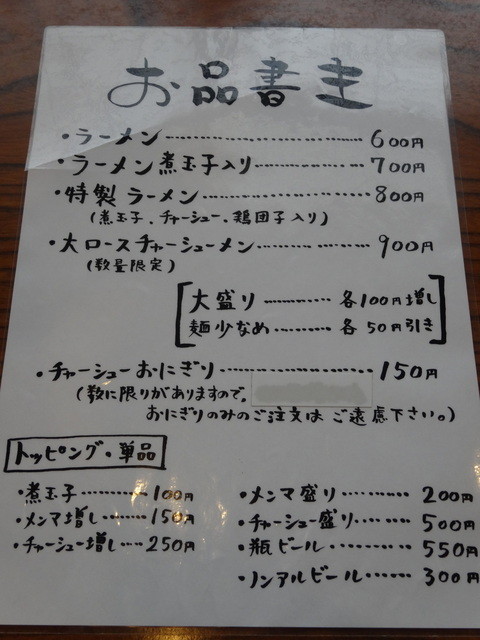 お品書き
・ラーメン-----------600円
・ラーメン煮玉子入り-----------700円
・特製ラーメン-----------800円
(煮玉子、チャーシュー、鶏団子入り)
・大ロースチャーシューメン-----------900円
(数量限定)
大盛り-----------各100円増し
麺少なめ-----------各50円引き
・チャーシューおにぎり-----------150円
(数に限りがありますので。
おにぎりのみのご注文はご遠慮下さい。)
トッピング・単品
・煮玉子-----------100円
・メンマ増し-----------150円
・チャーシュー増し-----250円
・メンマ盛り-----------200円
・チャーシュー盛り-----------500円
・瓶ビール-----------550円
・ノンアルビール-------300円